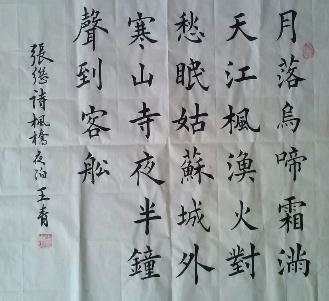 月落烏啼霜滿
天江楓漁火對
愁眠姑蘇城外
寒山寺夜半鐘
聲到客船
張繼詩楓橋夜泊 王青